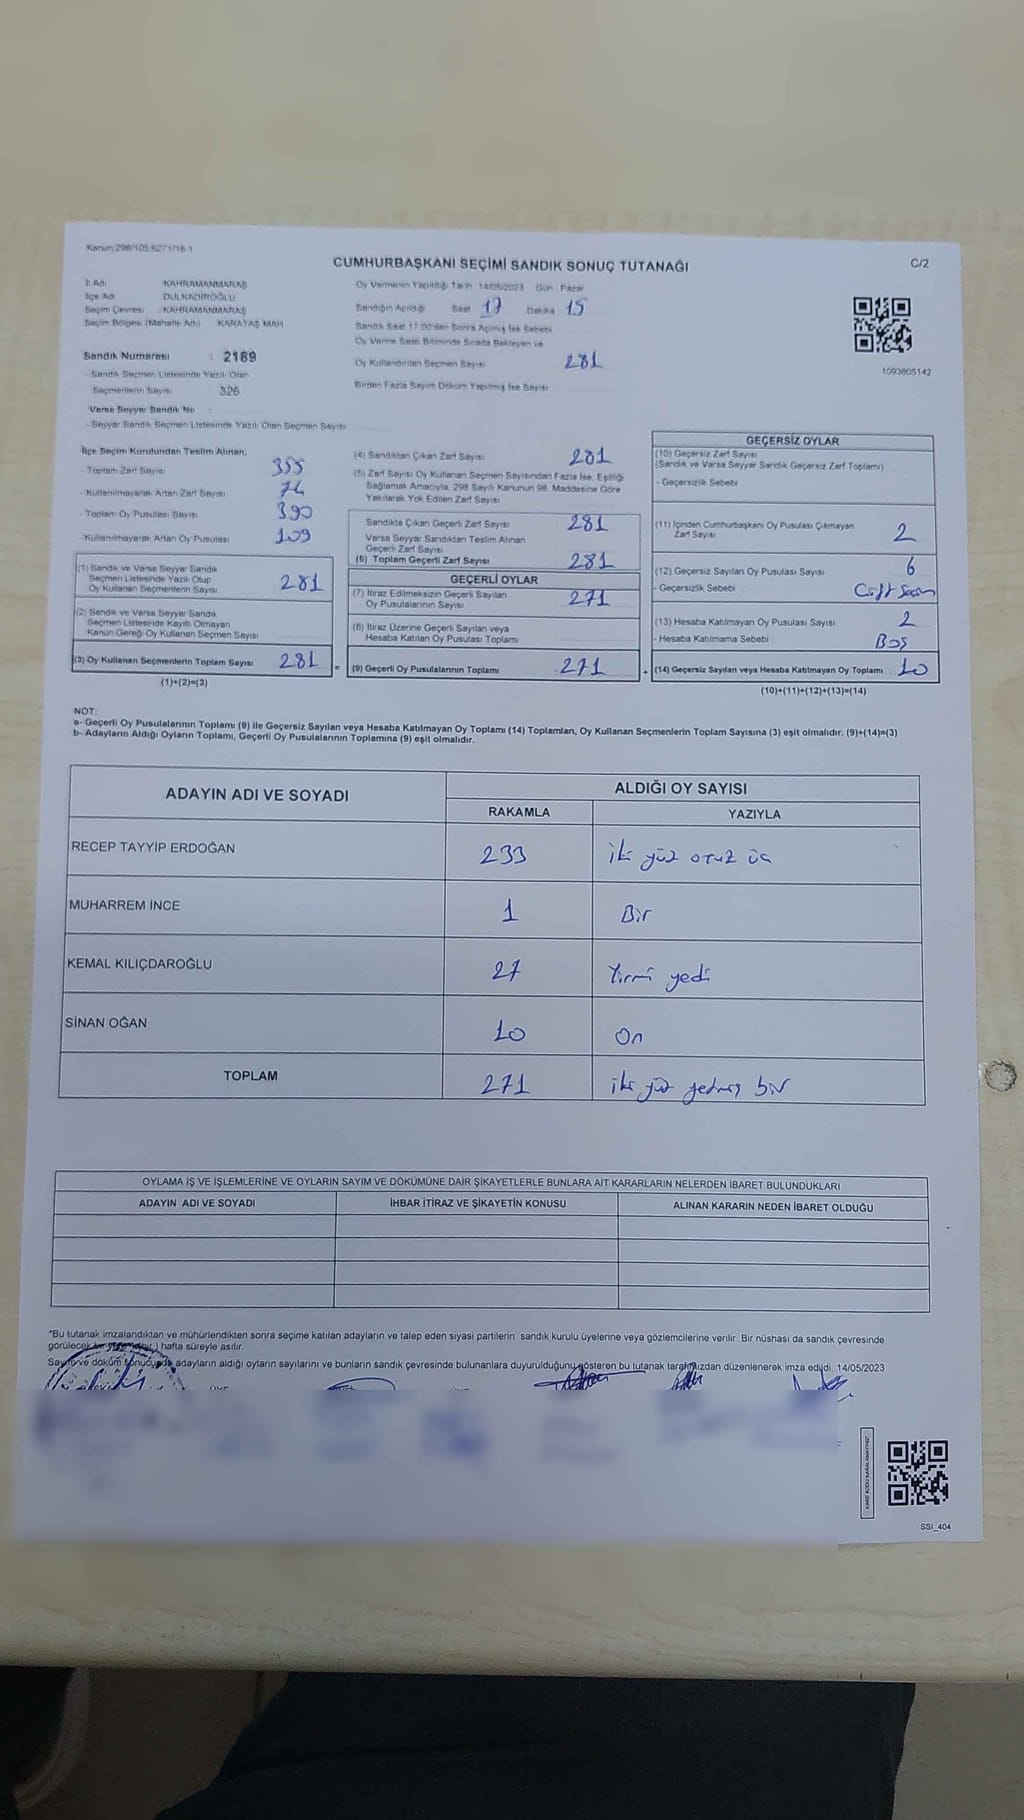 Kanun 298/105 6271/18-1
CUMHURBAŞKANI SEÇİMİ SANDIK SONUÇ TUTANAĞI
C/2
İl Adı : KAHRAMANMARAŞ
İlçe Adı : DULKADİROĞLU
Seçim Çevresi : KAHRAMANMARAŞ
Seçim Bölgesi (Mahalle Adı) : KARATAŞ MAH
Sandık Numarası : 2189
- Sandık Seçmen Listesinde Yazılı Olan
Seçmenlerin Sayısı : 326
Varsa Seyyar Sandık No :
- Seyyar Sandık Seçmen Listesinde Yazılı Olan Seçmen Sayısı
Oy Vermenin Yapıldığı Tarih 14/05/2023 Gün Pazar
Sandığın Açıldığı Saat 17 Dakika 15
Sandık Saat 17.00'den Sonra Açılmış İse Sebebi
Oy Verme Saati Bitiminde Sırada Bekleyen ve
Oy Kullandırılan Seçmen Sayısı 281
Birden Fazla Sayım Döküm Yapılmış İse Sayısı
1093805142
İlçe Seçim Kurulundan Teslim Alınan;
- Toplam Zarf Sayısı 355
- Kullanılmayarak Artan Zarf Sayısı 74
- Toplam Oy Pusulası Sayısı 390
- Kullanılmayarak Artan Oy Pusulası 109
(1) Sandık ve Varsa Seyyar Sandık
Seçmen Listesinde Yazılı Olup
Oy Kullanan Seçmenlerin Sayısı 281
(2) Sandık ve Varsa Seyyar Sandık
Seçmen Listesinde Kayıtlı Olmayan
Kanun Gereği Oy Kullanan Seçmen Sayısı
(3) Oy Kullanan Seçmenlerin Toplam Sayısı 281
(1)+(2)=(3)
(4) Sandıktan Çıkan Zarf Sayısı 281
(5) Zarf Sayısı Oy Kullanan Seçmen Sayısından Fazla İse, Eşitliği
Sağlamak Amacıyla, 298 Sayılı Kanunun 98. Maddesine Göre
Yakılarak Yok Edilen Zarf Sayısı
Sandıkta Çıkan Geçerli Zarf Sayısı 281
Varsa Seyyar Sandıktan Teslim Alınan
Geçerli Zarf Sayısı
(6) Toplam Geçerli Zarf Sayısı 281
GEÇERLİ OYLAR
(7) İtiraz Edilmeksizin Geçerli Sayılan
Oy Pusulalarının Sayısı 271
(8) İtiraz Üzerine Geçerli Sayılan veya
Hesaba Katılan Oy Pusulası Toplamı
= (9) Geçerli Oy Pusulalarının Toplamı 271
GEÇERSİZ OYLAR
(10) Geçersiz Zarf Sayısı
(Sandık ve Varsa Seyyar Sandık Geçersiz Zarf Toplamı)
- Geçersizlik Sebebi
(11) İçinden Cumhurbaşkanı Oy Pusulası Çıkmayan
Zarf Sayısı 2
(12) Geçersiz Sayılan Oy Pusulası Sayısı 6
- Geçersizlik Sebebi Çift Seçim
(13) Hesaba Katılmayan Oy Pusulası Sayısı 2
- Hesaba Katılmama Sebebi Boş
+ (14) Geçersiz Sayılan veya Hesaba Katılmayan Oy Toplamı 10
(10)+(11)+(12)+(13)=(14)
NOT:
a- Geçerli Oy Pusulalarının Toplamı (9) ile Geçersiz Sayılan veya Hesaba Katılmayan Oy Toplamı (14) Toplamları, Oy Kullanan Seçmenlerin Toplam Sayısına (3) eşit olmalıdır. (9)+(14)=(3)
b- Adayların Aldığı Oyların Toplamı, Geçerli Oy Pusulalarının Toplamına (9) eşit olmalıdır.
ADAYIN ADI VE SOYADI ALDIĞI OY SAYISI
RAKAMLA YAZIYLA
RECEP TAYYİP ERDOĞAN 233 iki yüz otuz üç
MUHARREM İNCE 1 Bir
KEMAL KILIÇDAROĞLU 27 Yirmi yedi
SİNAN OĞAN 10 On
TOPLAM 271 iki yüz yetmiş bir
OYLAMA İŞ VE İŞLEMLERİNE VE OYLARIN SAYIM VE DÖKÜMÜNE DAİR ŞİKAYETLERLE BUNLARA AİT KARARLARIN NELERDEN İBARET BULUNDUKLARI
ADAYIN ADI VE SOYADI İHBAR İTİRAZ VE ŞİKAYETİN KONUSU ALINAN KARARIN NEDEN İBARET OLDUĞU
*Bu tutanak imzalandıktan ve mühürlendikten sonra seçime katılan adayların ve talep eden siyasi partilerin sandık kurulu üyelerine veya gözlemcilerine verilir. Bir nüshası da sandık çevresinde
görülecek hafta süreyle asılır.
Sayım ve döküm sonucunda adayların aldığı oyların sayılarını ve bunların sandık çevresinde bulunanlara duyurulduğunu gösteren bu tutanak tarafımızdan düzenlenerek imza edildi. 14/05/2023
KARE KODU KARALAMAYINIZ!
SSI_404